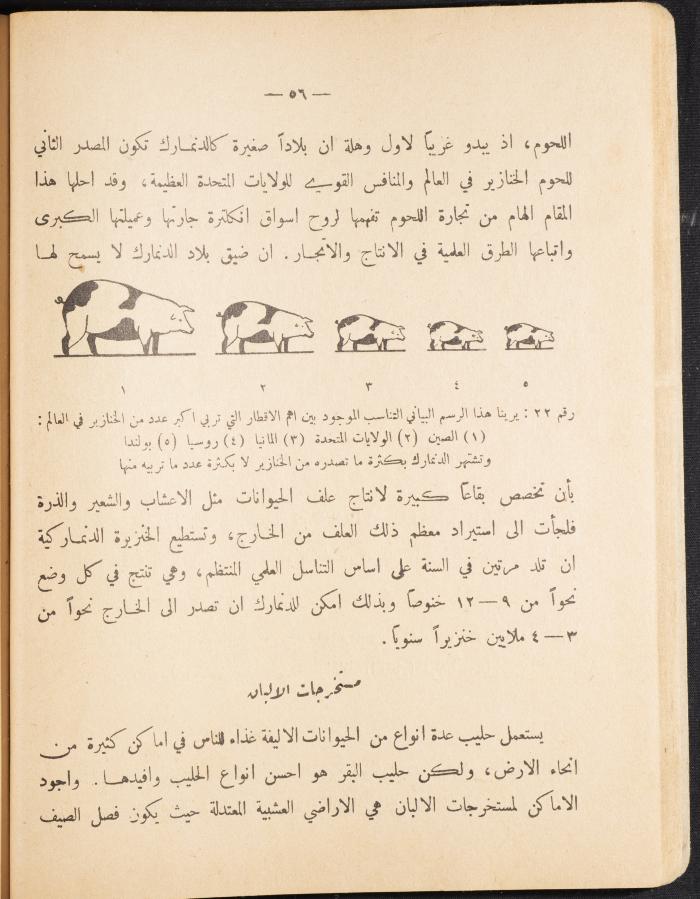 — ٥٦ —
اللحوم، اذ يبدو غريباً لاول وهلة ان بلاداً صغيرة كالدنمارك تكون المصدر الثاني
للحوم الخنازير في العالم والمنافس القوي للولايات المتحدة العظيمة، وقد احلها هذا
المقام الهام من تجارة اللحوم تفهمها لروح اسواق انكلترة جارتها وعميلتها الكبرى
واتباعها الطرق العلمية في الانتاج والاتجار. ان ضيق بلاد الدنمارك لا يسمح لها
١ ٢ ٣ ٤ ٥
رقم ٢٢ : يرينا هذا الرسم البياني التناسب الموجود بين اهم الاقطار التي تربي اكبر عدد من الخنازير في العالم :
(١) الصين (٢) الولايات المتحدة (٣) المانيا (٤) روسيا (٥) بولندا
وتشتهر الدنمارك بكثرة ما تصدره من الخنازير لا بكثرة عدد ما تربيه منها
بأن تخصص بقاعاً كبيرة لانتاج علف الحيوانات مثل الاعشاب والشعير والذرة
فلجأت الى استيراد معظم ذلك العلف من الخارج، وتستطيع الخنزيرة الدنماركية
ان تلد مرتين في السنة على اساس التناسل العلمي المنتظم، وهي تنتج في كل وضع
نحواً من ٩ — ١٢ خنوصاً وبذلك امكن للدنمارك ان تصدر الى الخارج نحواً من
٣ — ٤ ملايين خنزيراً سنوياً.
مستخرجات الالبان
يستعمل حليب عدة انواع من الحيوانات الاليفة غذاء للناس في اماكن كثيرة من
انحاء الارض، ولكن حليب البقر هو احسن انواع الحليب وافيدها. واجود
الاماكن لمستخرجات الالبان هي الاراضي العشبية المعتدلة حيث يكون فصل الصيف